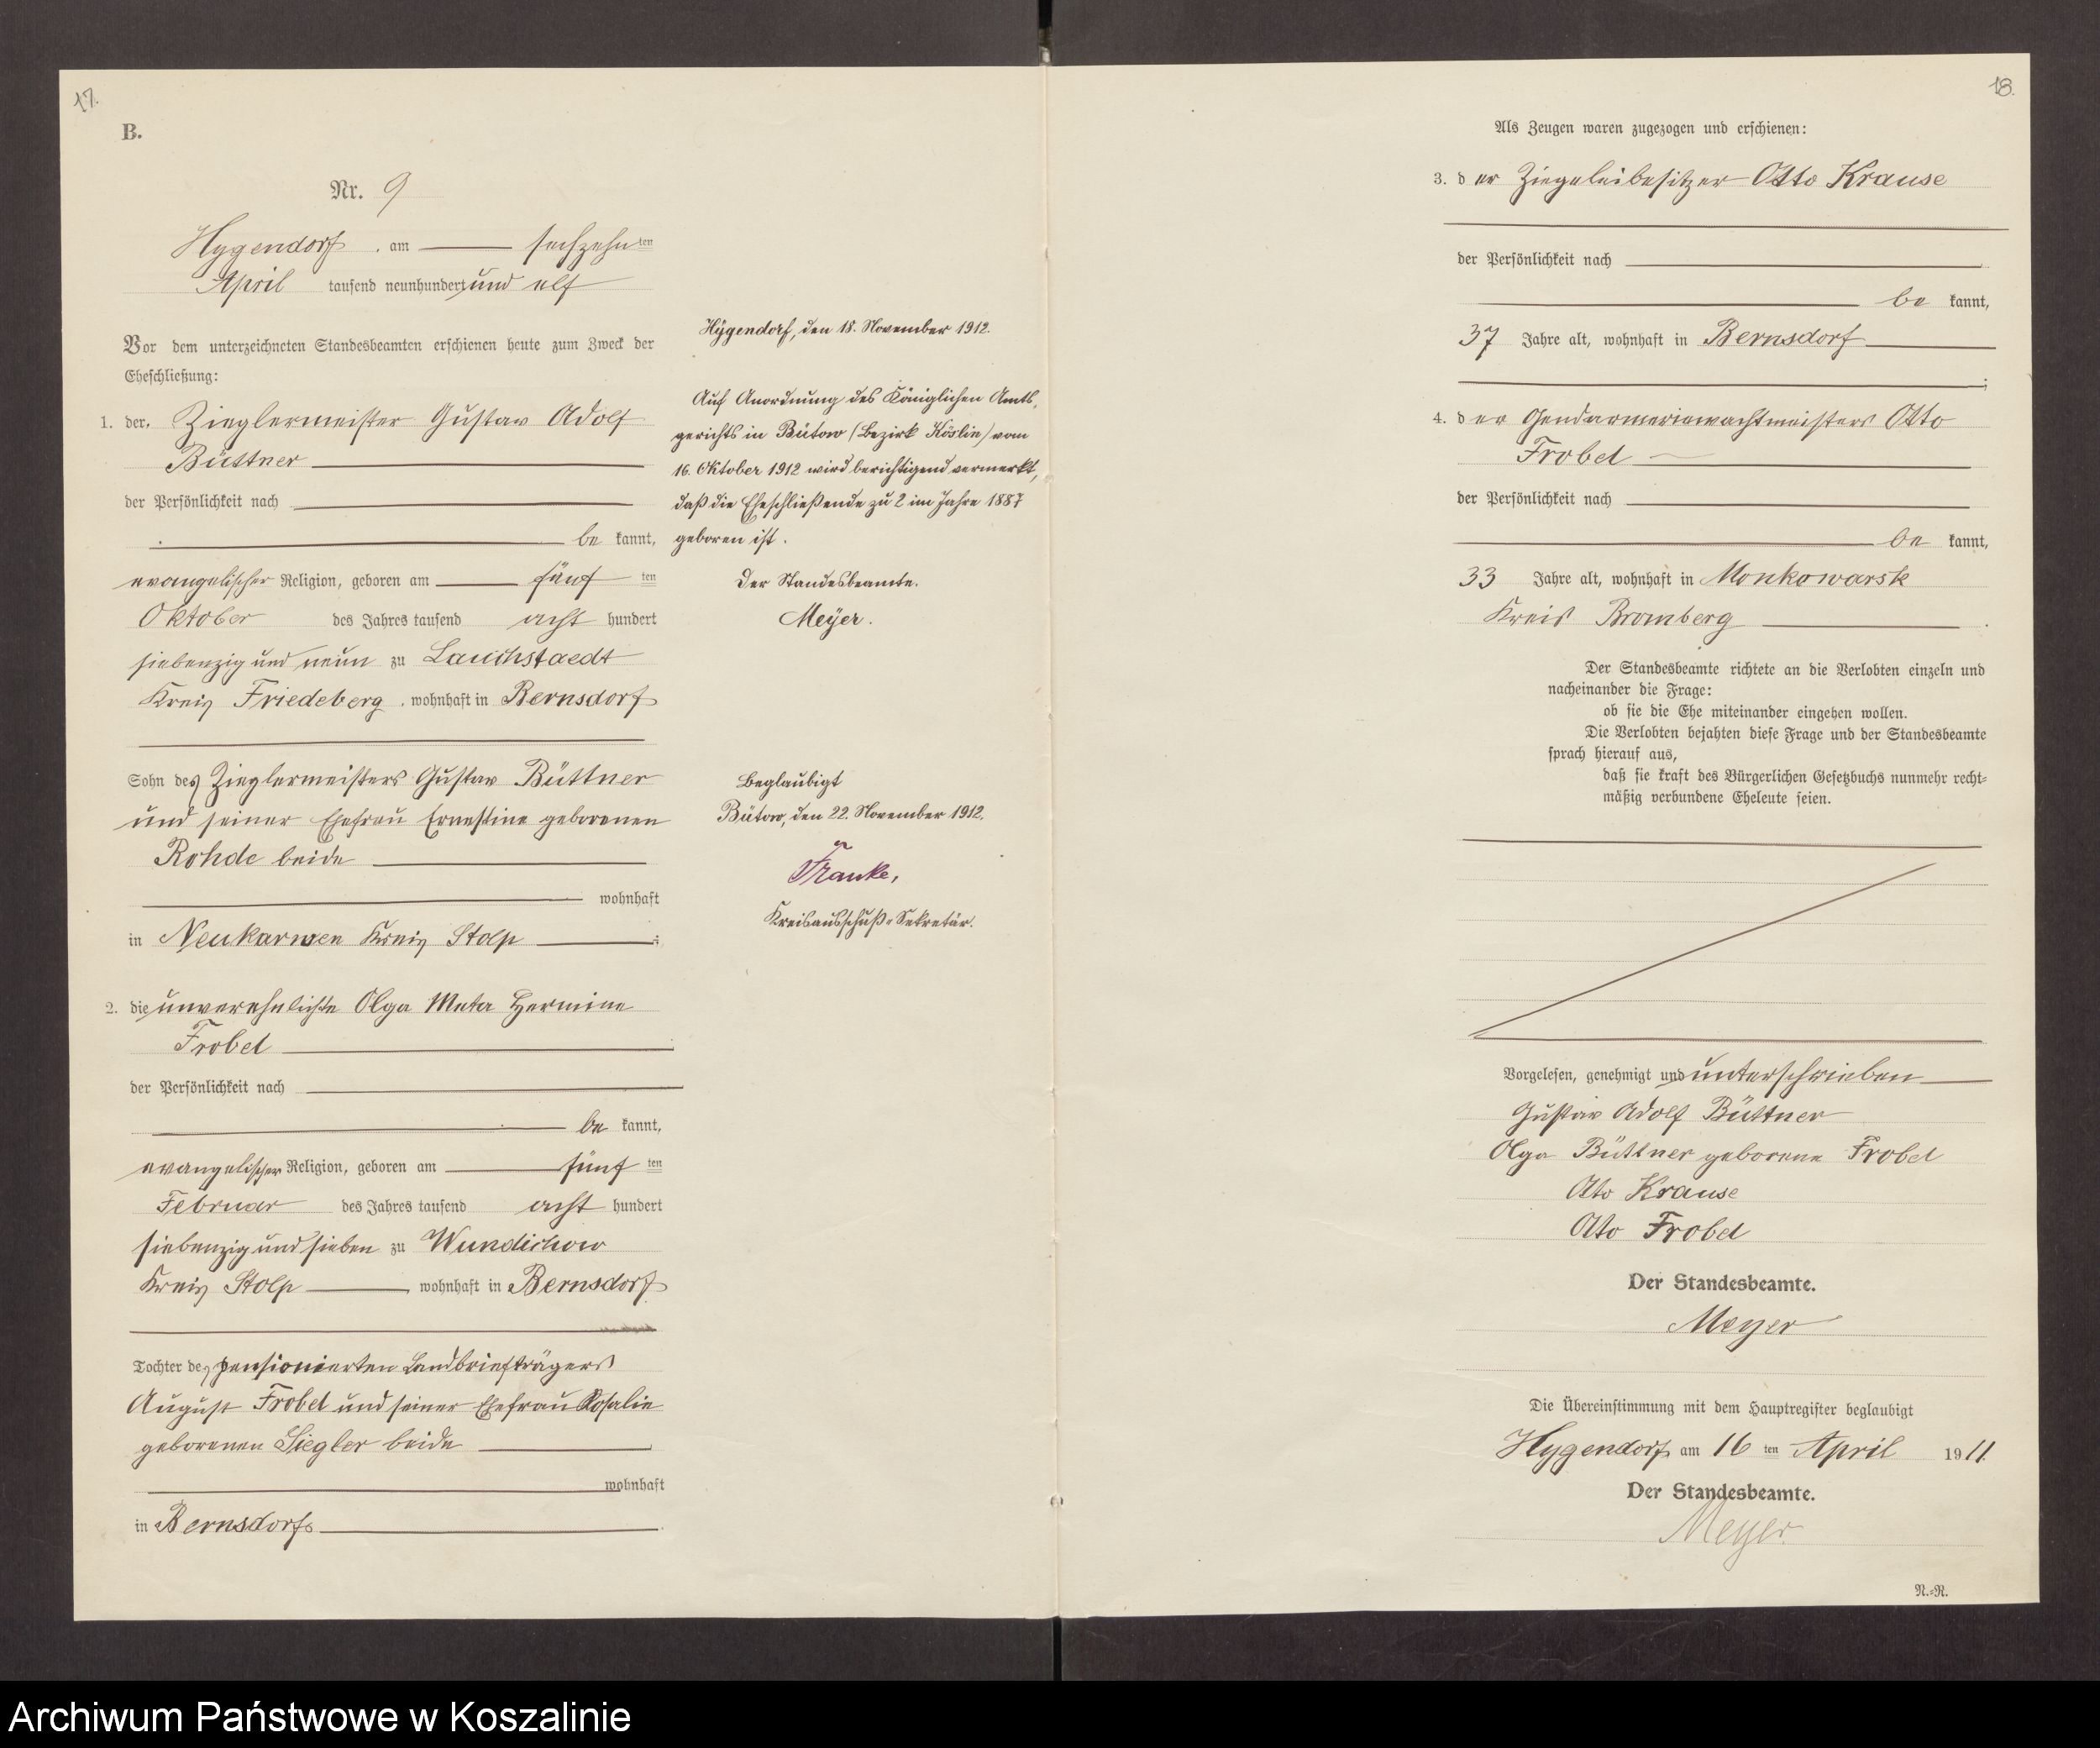 17.
B.
Nr. 9
Hygendorf, am sechzehnten
April tausend neunhundert und elf
Vor dem unterzeichneten Standesbeamten erschienen heute zum Zweck der
Eheschließung:
1. der Zieglermeister Gustav Adolf
Büttner
der Persönlichkeit nach
be kannt,
evangelischer Religion, geboren am fünf ten
Oktober des Jahres tausend acht hundert
siebenzig und neun zu Lauchstaedt
Kreis Friedeberg, wohnhaft in Bernsdorf
Sohn des Zieglermeisters Gustav Büttner
und seiner Ehefrau Ernestine geborenen
Rohde beide
wohnhaft
in Neukarwen Kreis Stolp ;
2. die unverehelichte Olga Meta Hermine
Frobel
der Persönlichkeit nach
be kannt,
evangelischer Religion, geboren am fünf ten
Februar des Jahres tausend acht hundert
siebenzig und sieben zu Wundichow
Kreis Stolp, wohnhaft in Bernsdorf
Tochter des pensionierten Landbriefträgers
August Frobel und seiner Ehefrau Rosalie
geborenen Siegler beide
wohnhaft
in Bernsdorf
Hygendorf, den 18. November 1912.
Auf Anordnung des Königlichen Amts-
gerichts in Bütow (Bezirk Köslin) vom
16. Oktober 1912 wird berichtigend vermerkt,
daß die Eheschließende zu 2 im Jahre 1887
geboren ist.
Der Standesbeamte.
Meyer.
Beglaubigt
Bütow, den 22. November 1912.
Franke,
Kreisausschuß-Sekretär.
18.
Als Zeugen waren zugezogen und erschienen:
3. der Ziegeleibesitzer Otto Krause
der Persönlichkeit nach
be kannt,
37 Jahre alt, wohnhaft in Bernsdorf
;
4. der Gendarmeriewachtmeisters Otto
Frobel
der Persönlichkeit nach
be kannt,
33 Jahre alt, wohnhaft in Monkowarsk
Kreis Bromberg .
Der Standesbeamte richtete an die Verlobten einzeln und
nacheinander die Frage:
ob sie die Ehe miteinander eingehen wollen.
Die Verlobten bejahten diese Frage und der Standesbeamte
sprach hierauf aus,
daß sie kraft des Bürgerlichen Gesetzbuchs nunmehr recht-
mäßig verbundene Eheleute seien.
Vorgelesen, genehmigt und unterschrieben
Gustav Adolf Büttner
Olga Büttner geborene Frobel
Otto Krause
Otto Frobel
Der Standesbeamte.
Meyer
Die Übereinstimmung mit dem Hauptregister beglaubigt
Hygendorf am 16 ten April 1911.
Der Standesbeamte.
Meyer.
N.-R.
Archiwum Państwowe w Koszalinie